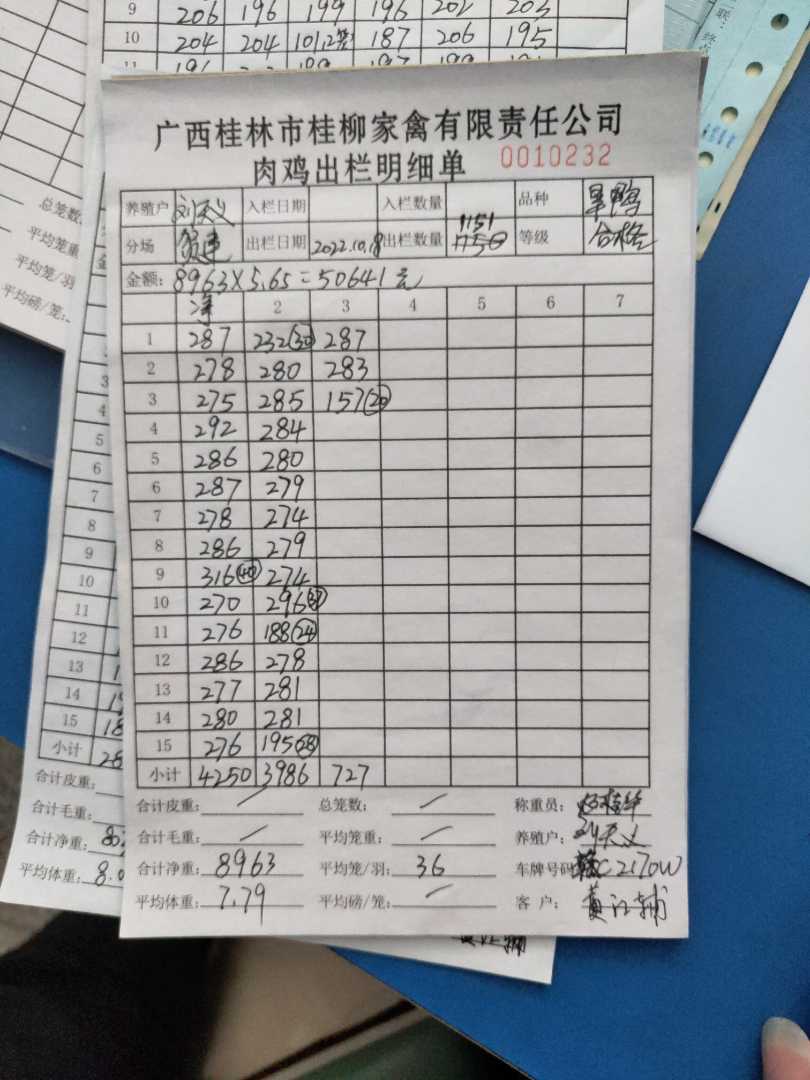 9 206 196 199 196 202 203
10 204 204 101,2 187 206 195
广西桂林市桂柳家禽有限责任公司
肉鸡出栏明细单 0010232
养殖户 刘天义 入栏日期 入栏数量 品种 旱鸭
分场 出栏日期 2022.10.18 出栏数量 1151 1150 等级 合格
金额: 8963×5.65=50641元
净 2 3 4 5 6 7
1 287 232(30) 287
2 278 280 283
3 275 285 157(20)
4 292 284
5 286 280
6 287 279
7 278 274
8 286 279
9 316(40) 274
10 270 296
11 276 188(24)
12 286 278
13 277 281
14 280 281
15 276 195(28)
小计 4250 3986 727
合计皮重: / 总笼数: / 称重员:
合计毛重: / 平均笼重: / 养殖户: 刘天义
合计净重: 8963 平均笼/羽: 36 车牌号码 赣C2170W
平均体重: 7.79 平均磅/笼: / 客 户: 黄江辅
总笼数
平均笼重
平均笼/羽
平均磅/笼:
3
4
5
6
7
8
9
10
11
12
13
14
15
小计
合计皮重:
合计毛重:
合计净重:
平均体重: 8.0